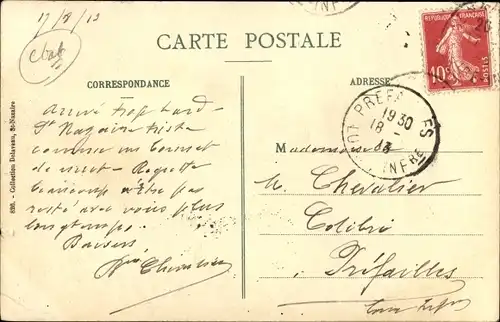 17/8/13
CARTE POSTALE
CORRESPONDANCE
ADRESSE
Arrivé trop tard -
St Nazaire triste
comme un bonnet
de nuit - Regrette
beaucoup n'être pas
resté avec vous plus
longtemps.
Baisers
Chevalier
RÉPUBLIQUE FRANÇAISE
10c
POSTES
PREFAILLES
19 30
18 -
13
LOIRE INFRE
INFRE
Mademoiselle
M. Chevalier
Colibri
Préfailles
Loire Infre
826. - Collection Delaveau, St-Nazaire